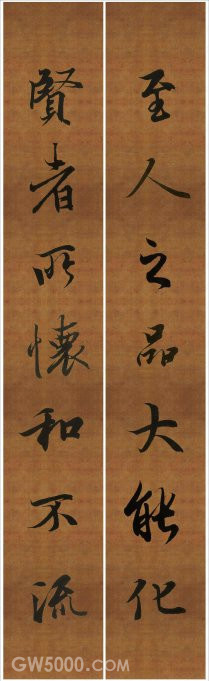 至人之品大能化
賢者所懷和不流
GW5000.com